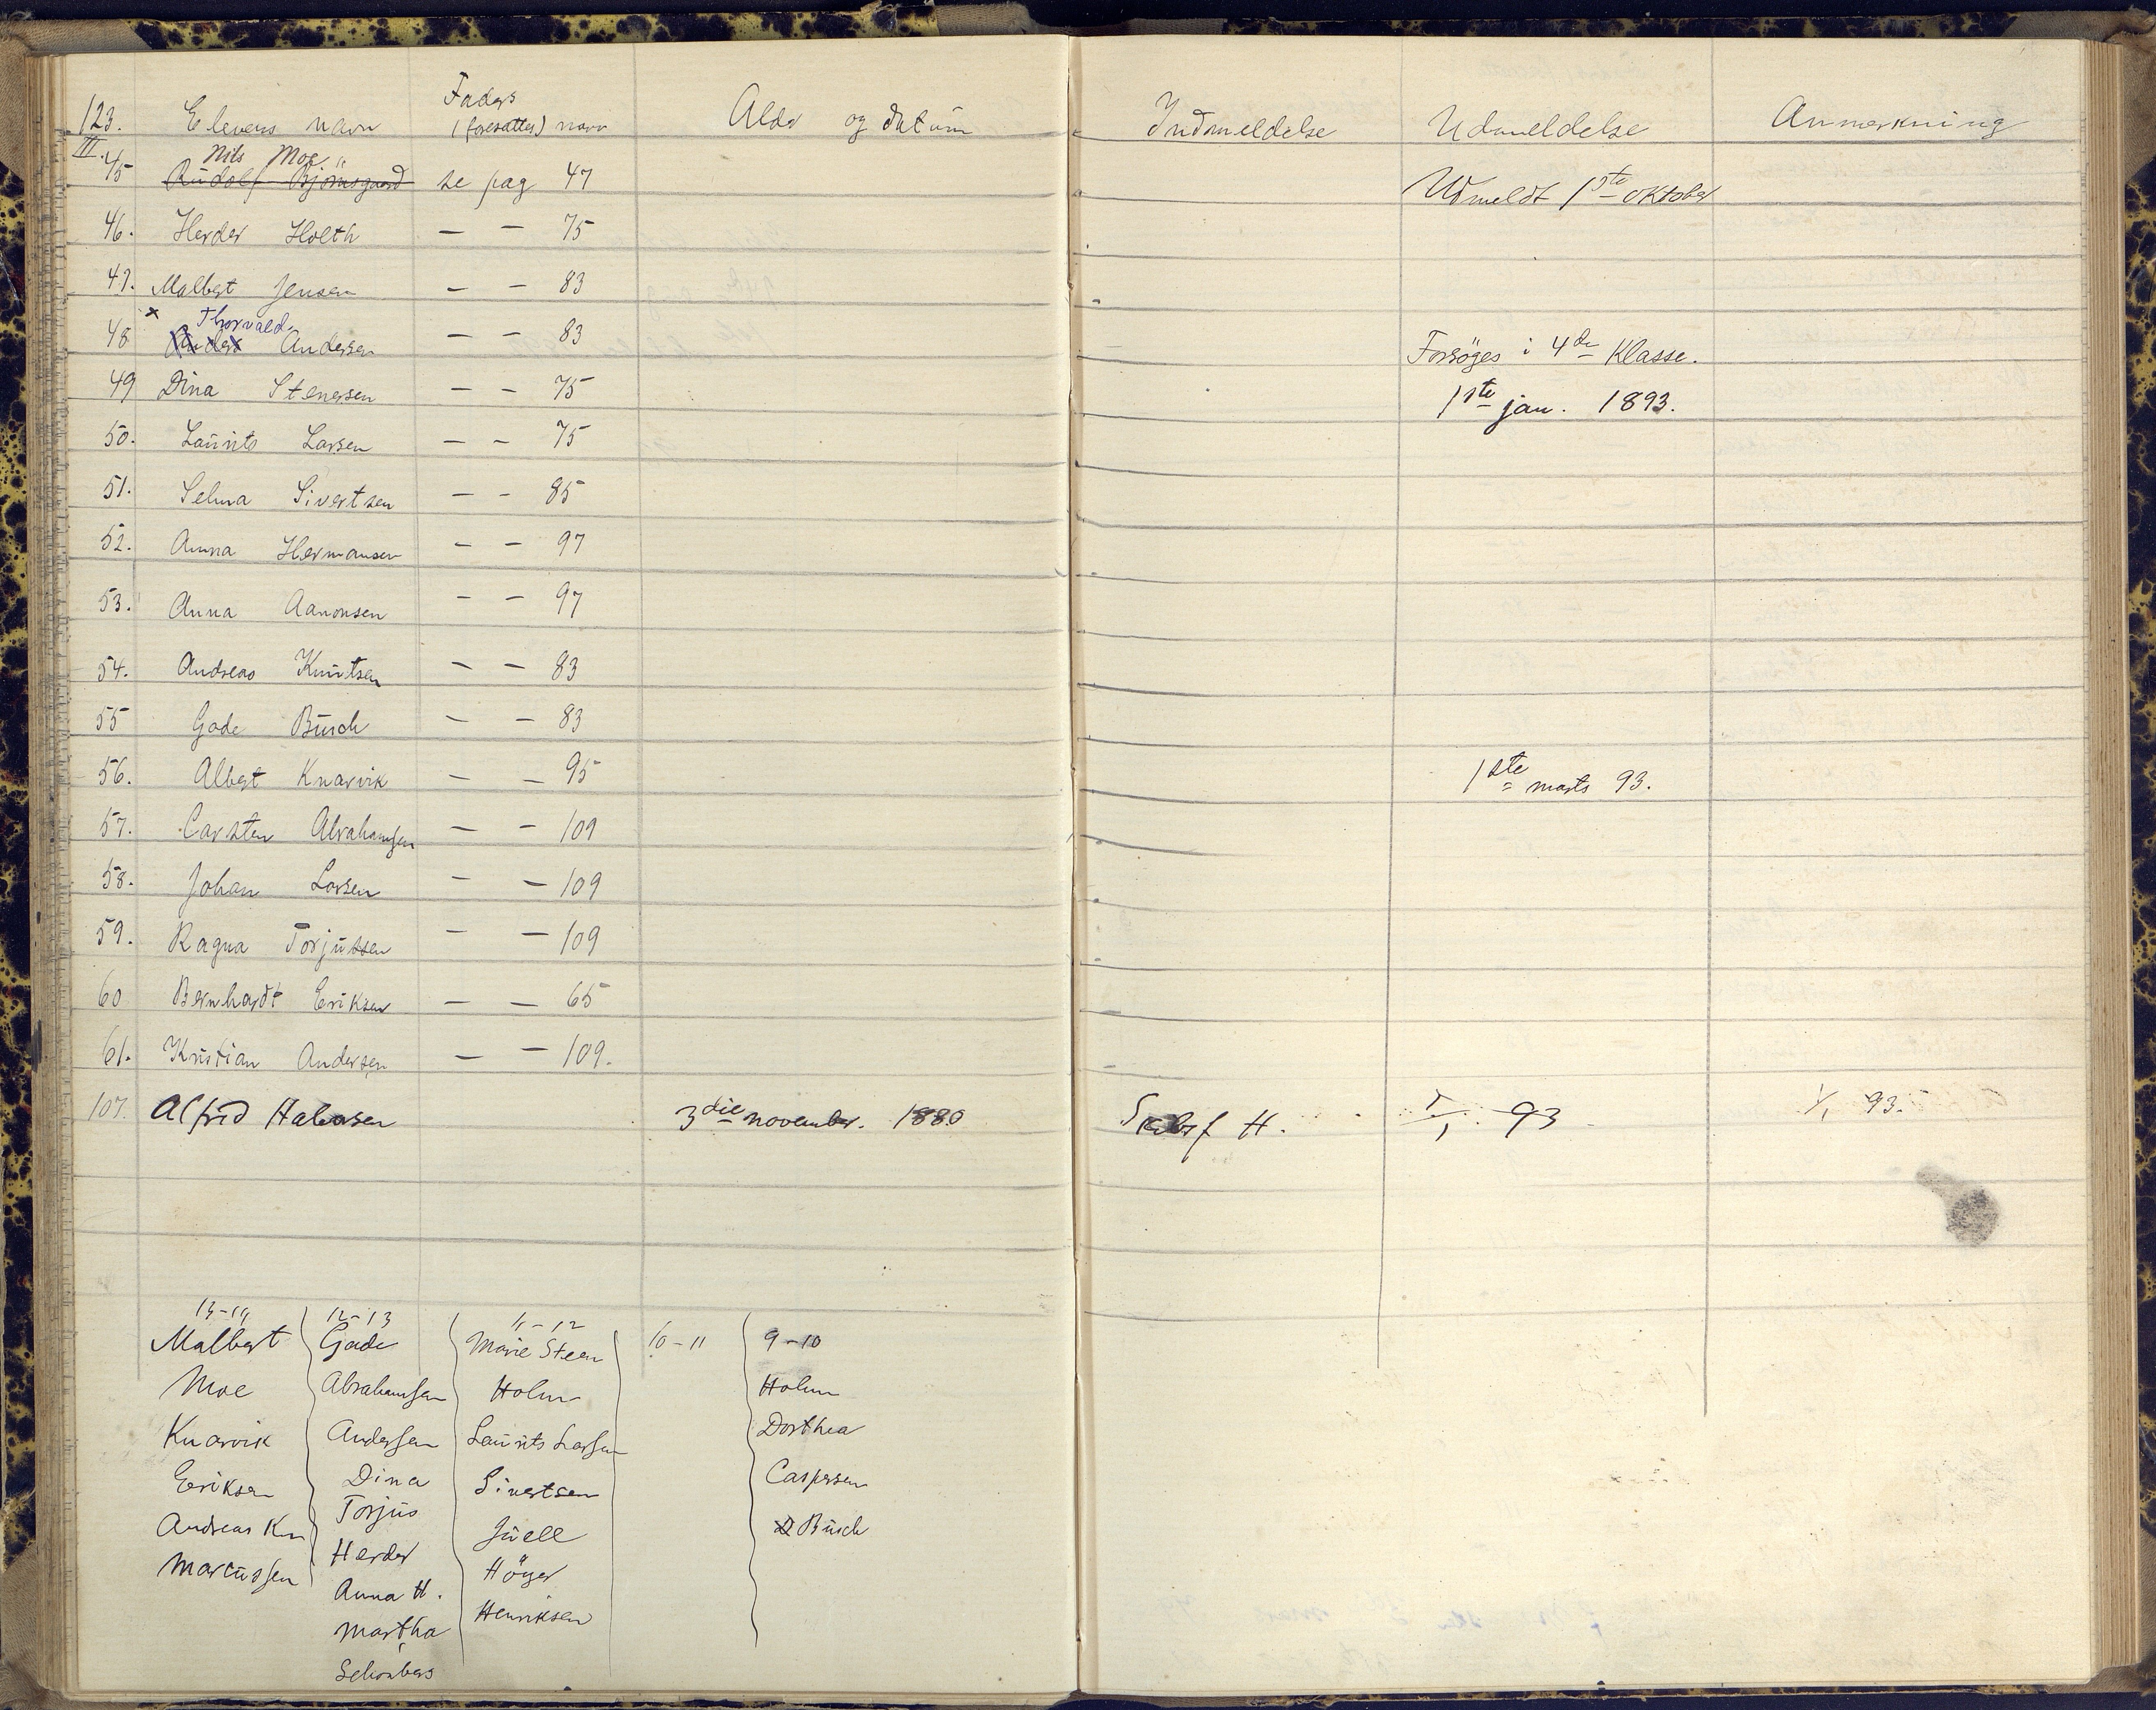 123. Elevens navn Faders (foresattes) navn Alder og datum Indmeldelse Udmeldelse Anmerkning
III.
Nils Moe
45 Rudolf Bjørnsgaard se pag 47 Udmeldt 1ste oktober
46. Herder Holth — — 75
47. Malbert Jensen — — 83
x Thorvald
48 Andersen — — 83 Forsöges i 4de Klasse.
49 Dina Stenersen — — 75 1ste jan. 1893.
50. Laurits Larsen — — 75
51. Selma Sivertsen — — 85
52. Anna Hermansen — — 97
53. Anna Aanonsen — — 97
54. Andreas Knutsen — — 83
55 Gade Busch — — 83
56. Albert Knarvik — — 95 1ste marts 93.
57. Carsten Abrahamsen — — 109
58. Johan Larsen — — 109
59. Ragna Torjussen — — 109
60 Bernhardt Eriksen — — 65
61. Kristian Andersen — — 109.
107. Alfred Halvorsen 3die november. 1880 H. 93 1/1 93.
13-14
Malbert
Moe
Knarvik
Eriksen
Andreas Kn
Marcussen
12-13
Gade
Abrahamsen
Andersen
Dina
Torjus
Herder
Anna H.
Martha
Schonberg
11-12
Marie Steen
Holm
Laurits Larsen
Sivertsen
Juell
Höyer
Henriksen
10-11
9-10
Holm
Dorthea
Caspersen
D Busch